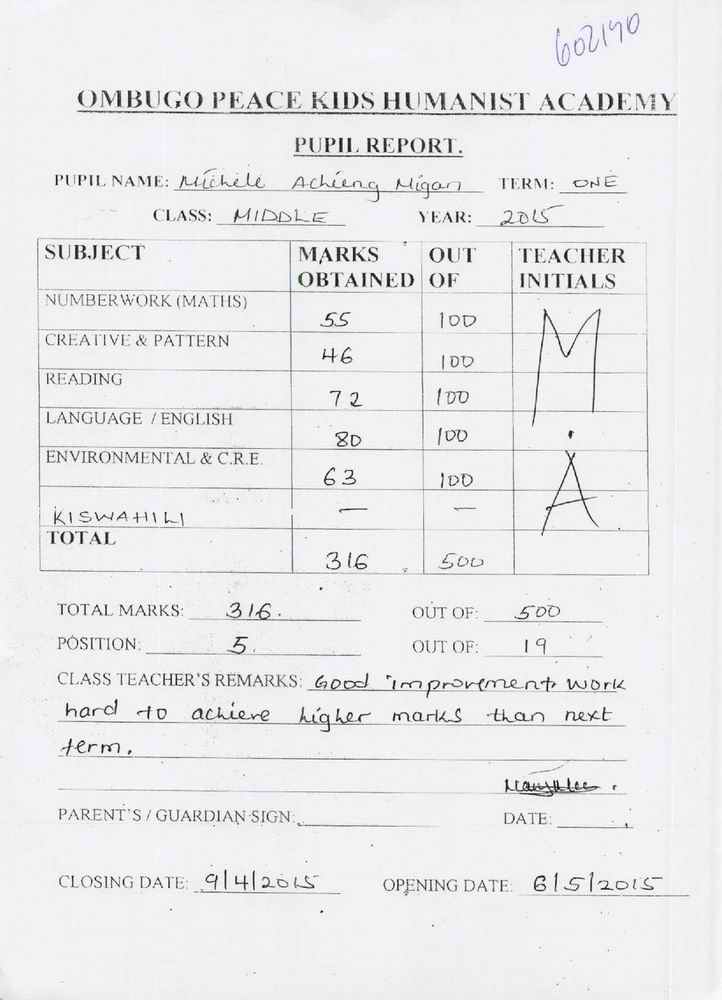 602190
OMBUGO PEACE KIDS HUMANIST ACADEMY
PUPIL REPORT.
PUPIL NAME: Michele Achieng Migan TERM: ONE
CLASS: MIDDLE YEAR: 2015
SUBJECT MARKS OBTAINED OUT OF TEACHER INITIALS
NUMBERWORK (MATHS) 55 100
CREATIVE & PATTERN 46 100
READING 72 100
LANGUAGE / ENGLISH 80 100
ENVIRONMENTAL & C.R.E. 63 100
KISWAHILI — —
M.A
TOTAL 316 500
TOTAL MARKS: 316. OUT OF: 500
POSITION: 5. OUT OF: 19
CLASS TEACHER'S REMARKS: Good improvement work
hard to achieve higher marks than next
term.
PARENT'S / GUARDIAN SIGN: DATE:
CLOSING DATE: 9/4/2015 OPENING DATE: 6/5/2015